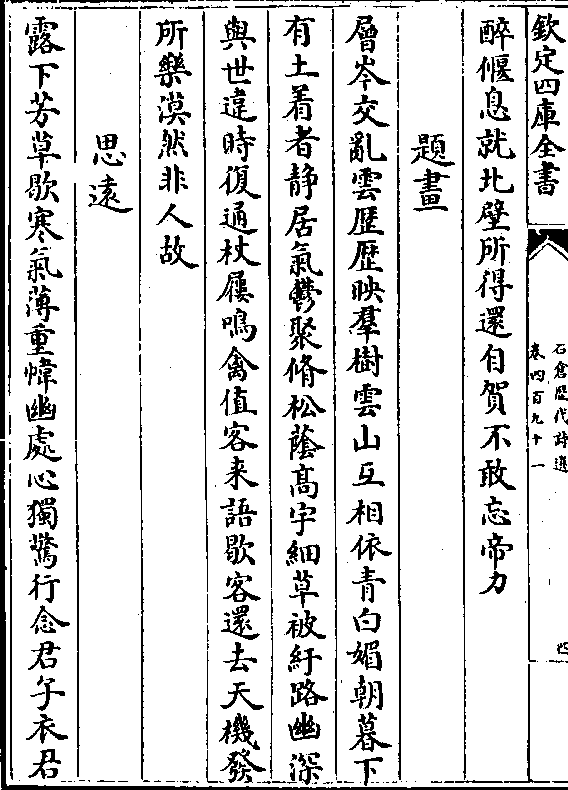 欽定四庫全書
石倉歴代詩選
卷四百九十一
四
醉偃息就北壁所得還自賀不敢忘帝力
題畫
層岑交亂雲歴歴映羣樹雲山互相依青白媚朝暮下
有土着者静居氣鬱聚脩松蔭髙宇細草被紆路幽深
與世違時復通杖屨鳴禽值客来語歇客還去天機發
所樂漠然非人故
思遠
露下芳草歇寒氣薄重幃幽處心獨驚行念君子衣君